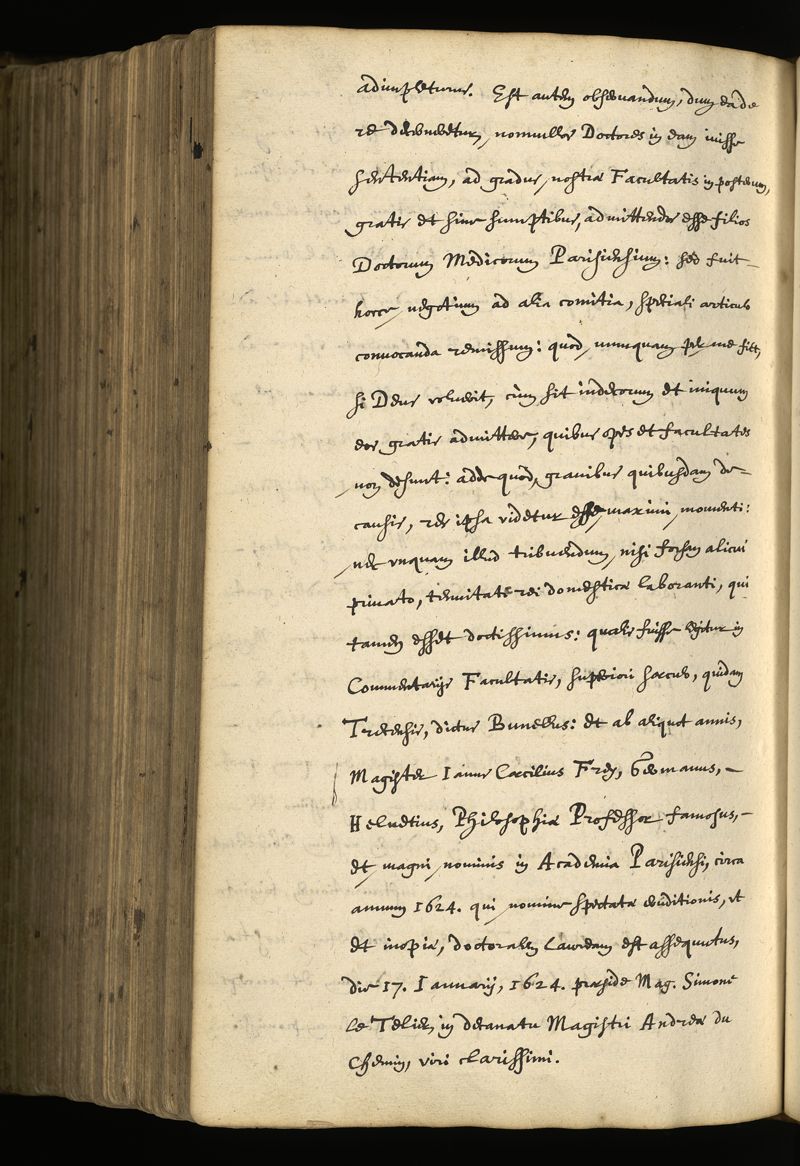 adimpleturus. Est autem obseruandum, dum ea de
re decerneretur, nonnullos Doctores in eam iuisse
sententiam, ad gradus nostræ Facultatis in posterum,
gratis et sine sumptibus, admittendos esse filios
Doctorum Medicorum Parisiensium: sed fuit
hocce negotium ad alia comitia, speciali articulo
conuocanda remissum: quod nunquam per me fiet,
si Deus voluerit, cùm sit indecorum et iniquum
eos gratis admittere, quibus opes et facultates
non desunt: adde quod, grauibus quibusdam de
causis, res ipsa videtur esse maximi momenti:
nec vnquam illud tribuendum, nisi forsan alicui
priuato, tenuitate rei domesticæ laboranti, qui
tamen esset doctissimus: qualis fuisse legitur in
Commentarijs Facultatis, superiori sæculo, quidam
Trecensis, dictus Bunellus: et ab aliquot annis,
Magister Ianus Cæcilius Frey, Germanus,
Heluetius, Philosophiæ Professor famosus,
et magni nominis in Academia Parisiensi, circa
annum 1624. qui nomine spectatæ eruditionis, vt
et inopiæ, doctoralem lauream est assequutus,
die 17. Ianuarij, 1624. præside Mag. Simone
Le Telier, in decanatu Magistri Andreæ du
Chemin, viri clarissimi.